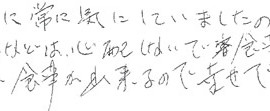 に常に気にしていましたの
などは、心配しないで審食
食事が出来るので幸せで